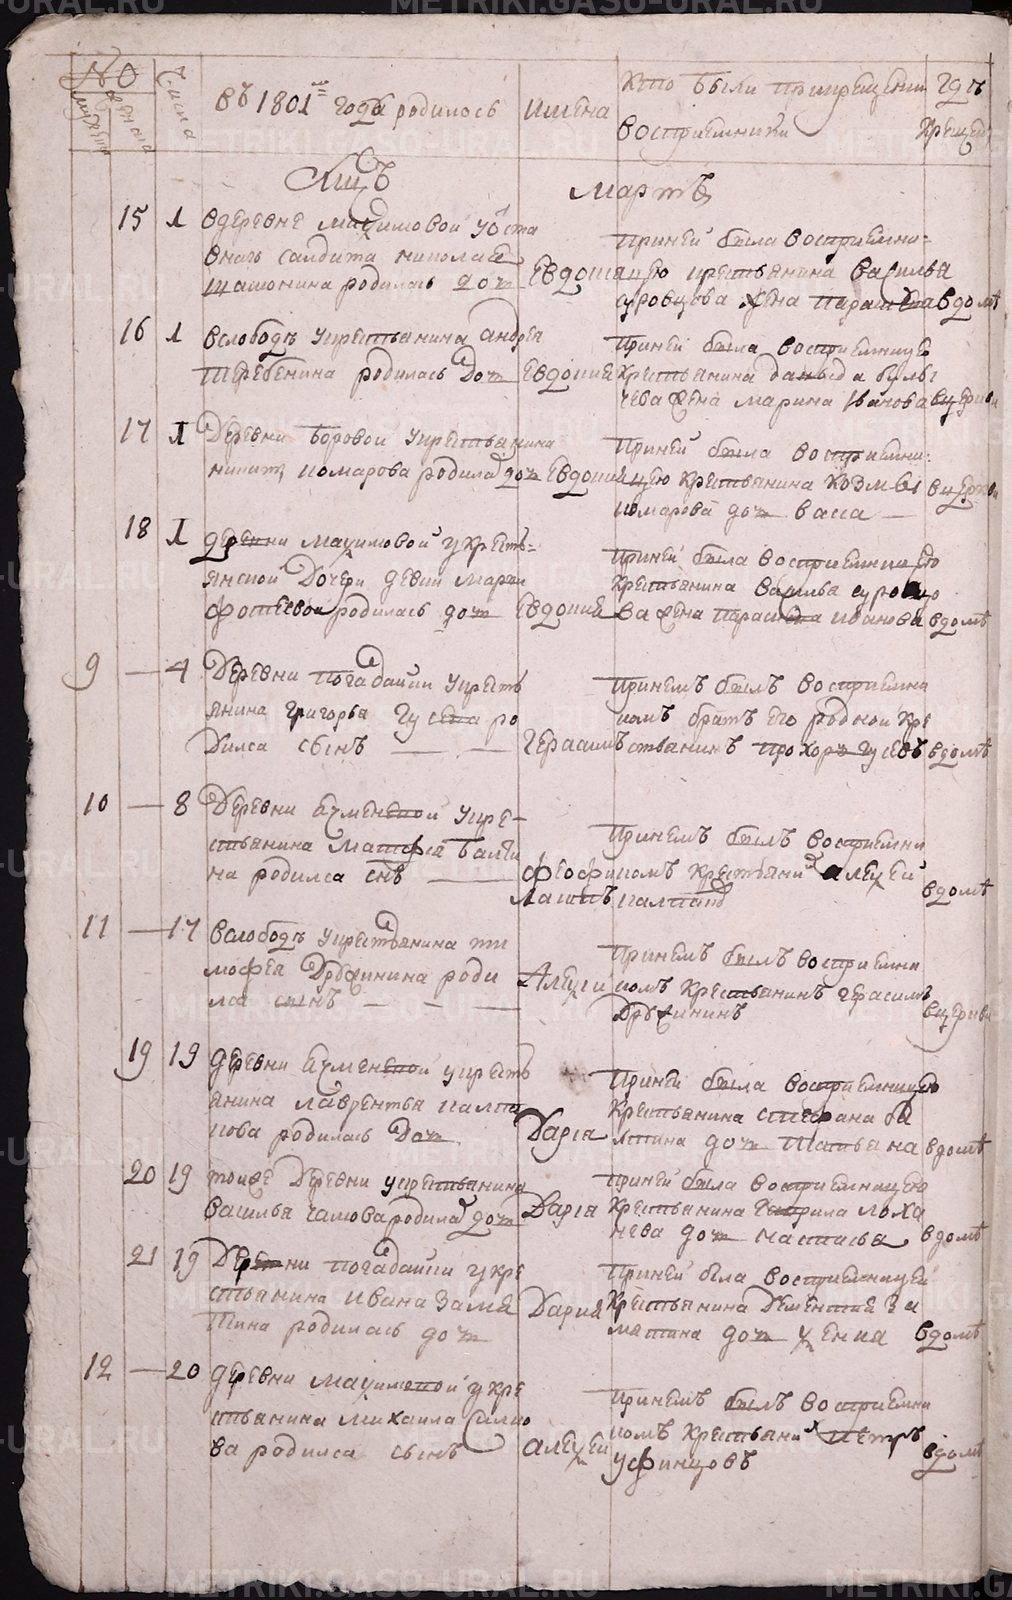 METRIKI.GASO-URAL.RU
№
Числа
въ 1801м году родилось
имена
кто были при крещении
воспріемники
гдѣ
крещен
Мцъ
Мартъ
15 1 в деревне Максимовой у оста
внагъ салдата николая
родилась дочь
Евдокия
при ней была воспріемни=
цею крестьянина василья
суровцева жена параскева
в домѣ
16 1 в слободѣ у крестьянина андрея
Теребенина родилась дочь
Евдокия
при ней была воспріемницею
крестьянина давыда
чева жена марина иванова
в церкви
17 1 Деревни боровой у крестьянина
никиты комарова родилась дочь
Евдокия
при ней была воспріемни=
цею крестьянина козмы
комарова дочь васса —
в церкви
18 1 деревни максимовой у кресть=
янской дочери девки марьи
фотиевой родилась дочь
Евдокия
при ней была воспріемницею
крестьянина василья суровцо
ва жена параскева иванова
в домѣ
9 — 4 Деревни погадайки у кресть
янина григорья гусева ро
дился сынъ — —
Герасимъ
при немъ былъ воспріемни
комъ братъ его родной кре
стьянинъ прохоръ гусевъ
в домѣ
10 — 8 Деревни бухменевой у кре-
стьянина матфея балти
на родился снъ —
Феофи
лактъ
при немъ былъ воспріемни
комъ крестьянинъ алексей
в домѣ
11 — 17 в слободѣ у крестьянина ти
мофея Дружинина роди
лся сынъ — — —
Алексей
при немъ былъ воспріемни
комъ крестьянинъ герасимъ
Дружининъ
в церкви
19 19 деревни бухменевой у кресть
янина лаврентья
кова родилась дочь
Дарія
при ней была воспріемницею
крестьянина стефана ба
лтина дочь татьяна
в домѣ
20 19 тоя же деревни у крестьянина
василья родилась дочь
Дарія
при ней была воспріемницею
крестьянина гаврила лоха
нева дочь настасья
в домѣ
21 19 Деревни погадайки у кре
стьянина ивана замя
тина родилась дочь
Дария
при ней была воспріемницей
крестьянина дементия за
мятина дочь ксения
в домѣ
12 — 20 деревни максимовой у кре
стьянина михаила
ва родился сынъ
алексей
при немъ былъ воспріемни
комъ крестьянинъ петръ
уфинцовъ
в домѣ
METRIKI.GASO-URAL.RU